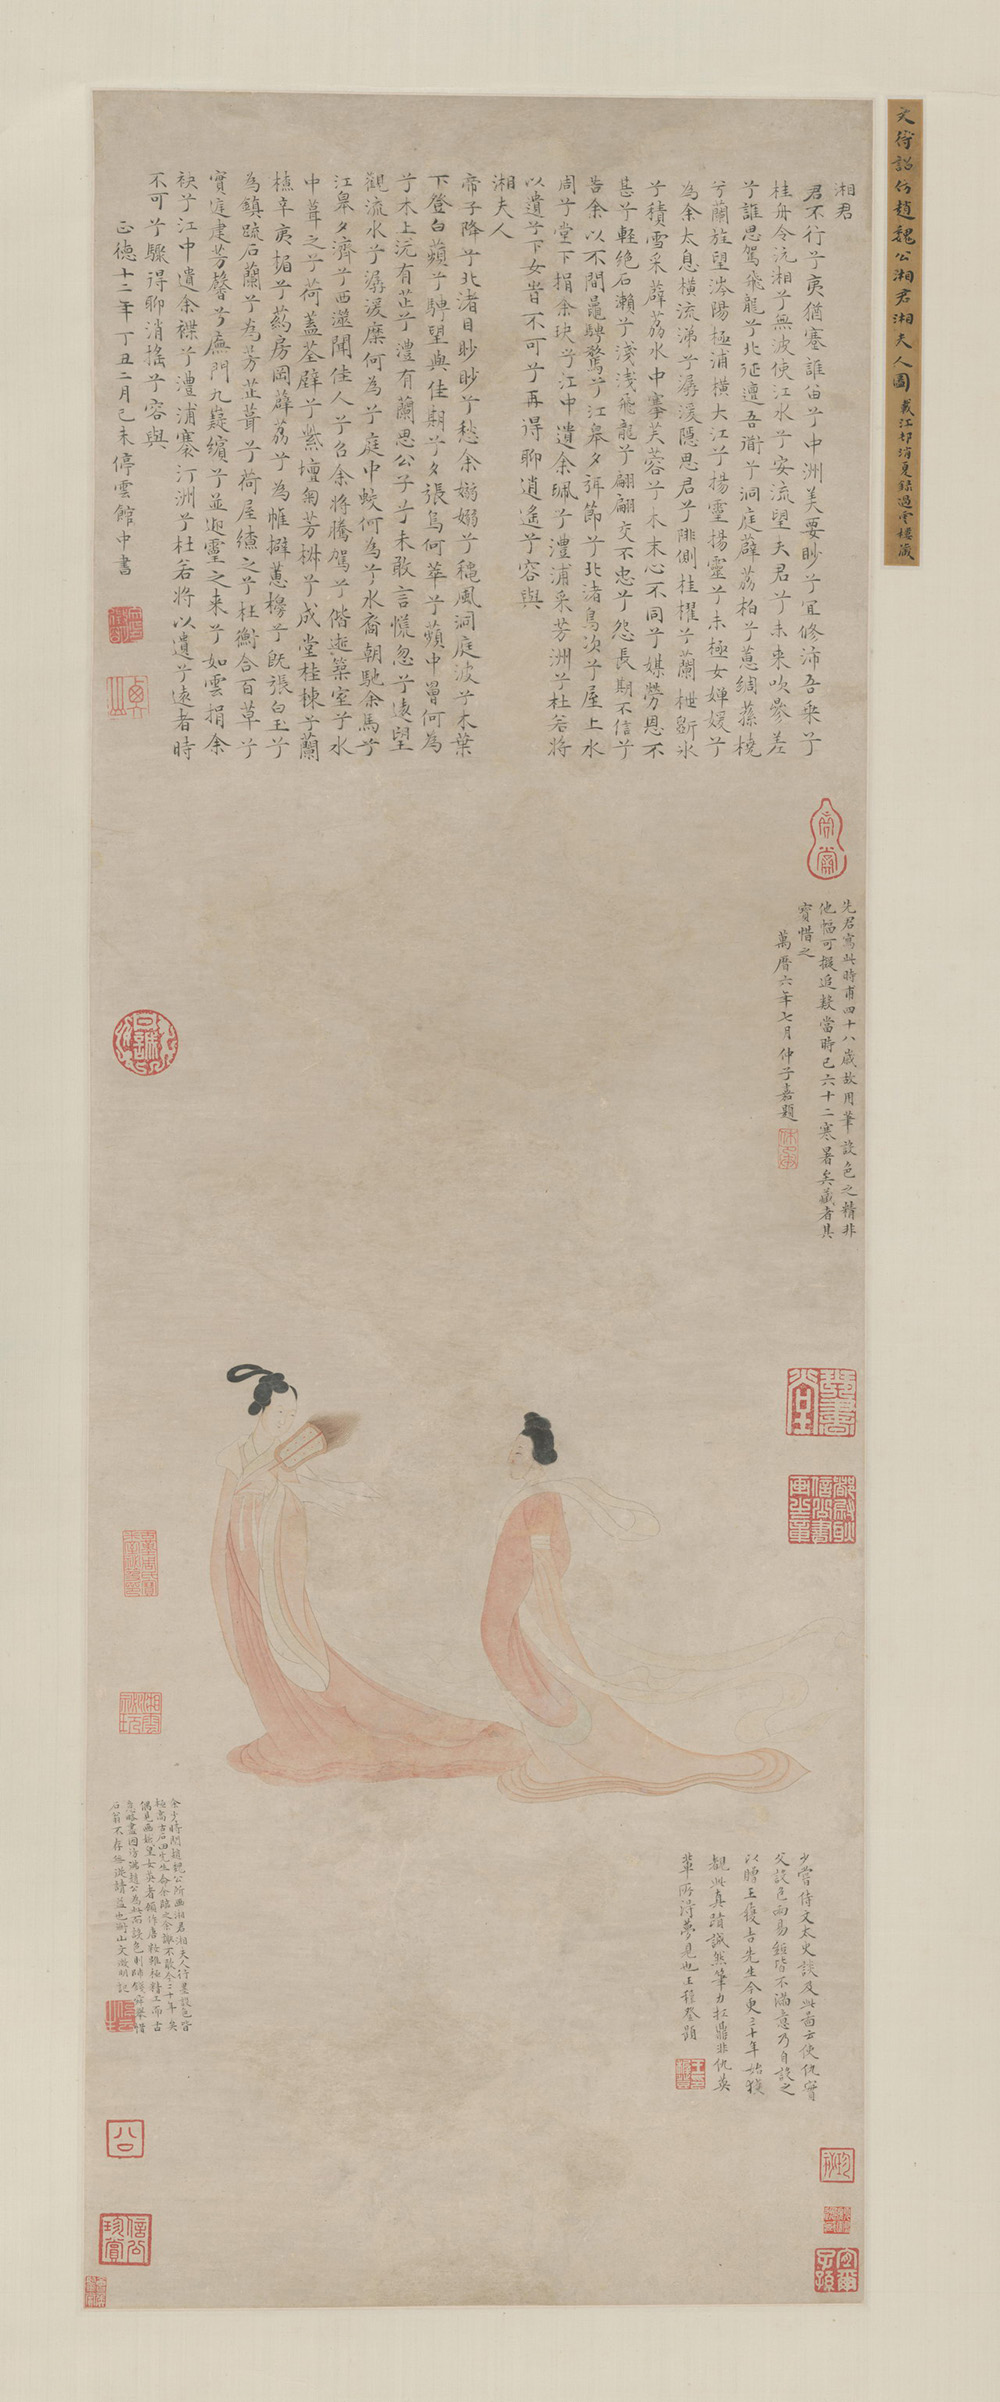 文待詔仿趙魏公湘君湘夫人圖 載江邨消夏錄過雲樓藏
湘君
君不行兮夷猶蹇誰留兮中洲美要眇兮宜修沛吾乘兮
桂舟令沅湘兮無波使江水兮安流望夫君兮未來吹參差
兮誰思駕飛龍兮北征邅吾道兮洞庭薜荔柏兮蕙綢蓀橈
兮蘭旌望涔陽極浦橫大江兮揚靈揚靈兮未極女嬋媛兮
為余太息橫流涕兮潺湲隱思君兮陫側桂櫂兮蘭枻斲冰
兮積雪采薜荔水中搴芙蓉兮木末心不同兮媒勞恩不
甚兮輕絕石瀨兮淺淺飛龍兮翩翩交不忠兮怨長期不信兮
告余以不閒鼂騁騖兮江皋夕弭節兮北渚鳥次兮屋上水
周兮堂下捐余玦兮江中遺余珮兮澧浦采芳洲兮杜若將
以遺兮下女旹不可兮再得聊逍遙兮容與
湘夫人
帝子降兮北渚目眇眇兮愁余嫋嫋兮穐風洞庭波兮木葉
下登白蘋兮騁望與佳期兮夕張鳥何萃兮蘋中罾何為
兮木上沅有芷兮澧有蘭思公子兮未敢言慌忽兮遠望
觀流水兮潺湲麋何為兮庭中蛟何為兮水裔朝馳余馬兮
江皋夕濟兮西澨聞佳人兮召余將騰駕兮偕逝築室兮水
中葺之兮荷蓋荃壁兮紫壇匊芳椒兮成堂桂棟兮蘭
橑辛夷楣兮葯房罔薜荔兮為帷擗蕙櫋兮既張白玉兮
為鎮疏石蘭兮為芳芷葺兮荷屋繚之兮杜衡合百草兮
實庭建芳馨兮廡門九嶷繽兮並迎靈之來兮如雲捐余
袂兮江中遺余褋兮澧浦搴汀洲兮杜若將以遺兮遠者時
不可兮驟得聊消搖兮容與
正德十二年丁丑二月己未停雲館中書
先君寫此時甫四十八歲故用筆設色之精非
他幅可擬追數當時已六十二寒暑矣藏者其
寶惜之
萬曆六年七月仲子嘉題
少嘗侍文太史談及此圖云使仇實
父設色兩易紙皆不滿意乃自設之
以贈王履吉先生今更三十年始獲
觀此真蹟誠然筆力扛鼎非仇英
輩所得夢見也王穉登題
余少時閱趙魏公所畫湘君湘夫人行墨設色皆
極高古石田先生命余臨之余謝不敢今二十年矣
偶見畫娥皇女英者顧作唐妝雖極精工而古
意略盡因仿佛趙公為此而設色則師錢舜舉惜
石翁不存無從請益也衡山文徵明記
信公珍賞
宜爾子孫
都尉耿信公書畫之章
琴書堂